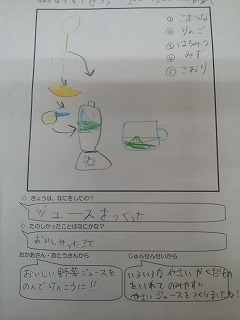 ① こまつな
② りんご
③ はちみつ
④ みず
⑤ こおり
◇ きょうは、なにをしたの？
ジュースをつくった
◇ たのしかったことはなにかな？
おかあさん・おとうさんから
おいしい野菜ジュースを
のんでけんこうに!!
じゅんせんせいから
いろいろな やさい やくだもの
をいれて のみやすい
やさいジュースをつくりましたね!